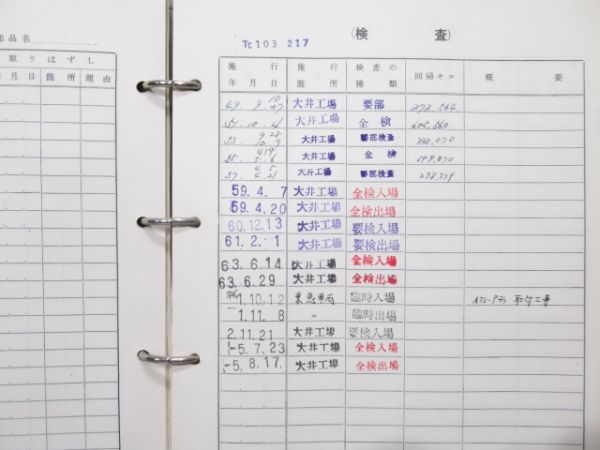 部品名
取りはずし
年月日 箇所 理由
(検査)
Tc103 217
施行年月日 施行箇所 検査の種類 回帰キロ 概要
49. 大井工場 要部
51. 10. 大井工場 全検
53. 大井工場 要部検査
55. 大井工場 全検
57. 大井工場 要部検査
59.4.7 大井工場 全検入場
59.4.20 大井工場 全検出場
60.12.13 大井工場 要検入場
61.2.1 大井工場 要検出場
63.6.14 大井工場 全検入場
63.6.29 大井工場 全検出場
1.10.12 臨時入場 ATS-P 取付工事
1.11.8 〃 臨時出場
2.11.21 大井工場 要検入場
-5.7.23 大井工場 全検入場
-5.8.17 大井工場 全検出場